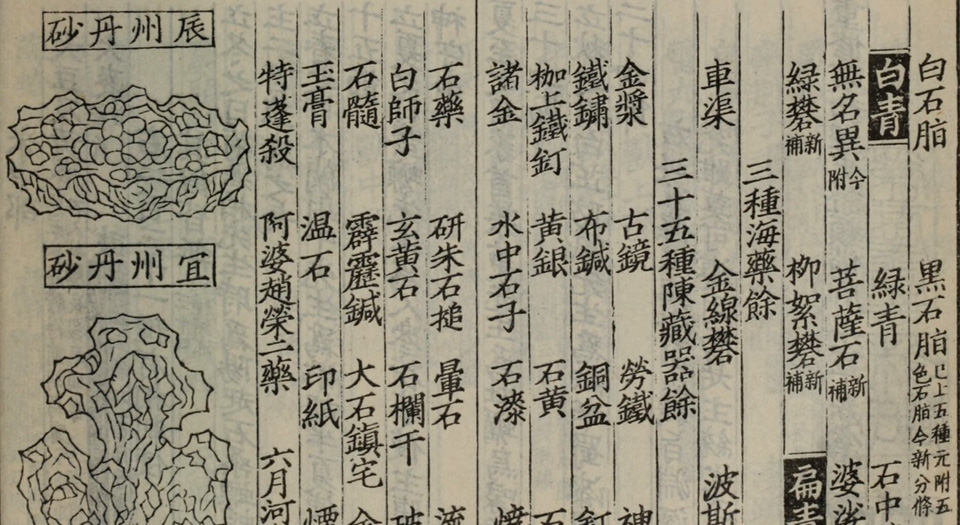 白石脂 黒石脂 已上五種元附五色石脂今新分條
白青 緑青 石中
無名異 今附 菩薩石 新補 婆娑
緑礬 新補 柳絮礬 新補 扁青
三種海藥餘
車渠 金線礬 波斯
三十五種陳藏器餘
金漿 古鏡 勞鐵 神
鐵鏽 布鍼 銅盆 釘
枷上鐵釘 黄銀 石黄 石
諸金 水中石子 石漆 燒
石藥 研朱石槌 暈石 流
白師子 玄黄石 石欄干 玻
石髓 霹靂鍼 大石鎮宅 金
玉膏 温石 印紙 煙
特蓬殺 阿婆趙榮二藥 六月河
辰州丹砂
宜州丹砂